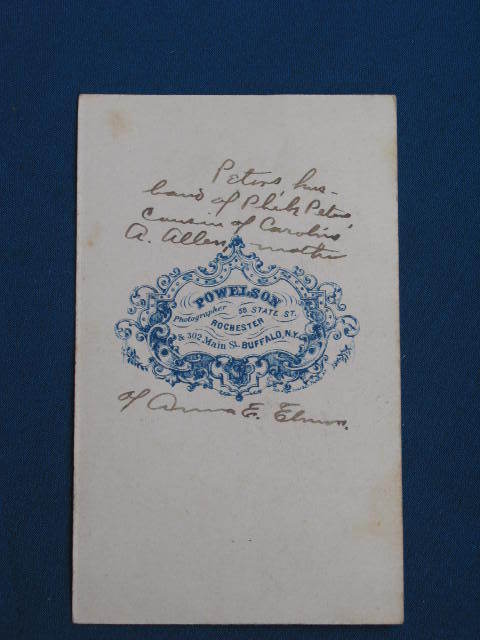 Peters, hus-
band of Pheb Peters'
cousin of Caroline
A. Allen, mother
POWELSON
Photographer 58 STATE ST.
ROCHESTER
& 302 Main St. BUFFALO, N.Y.
of Anna E.